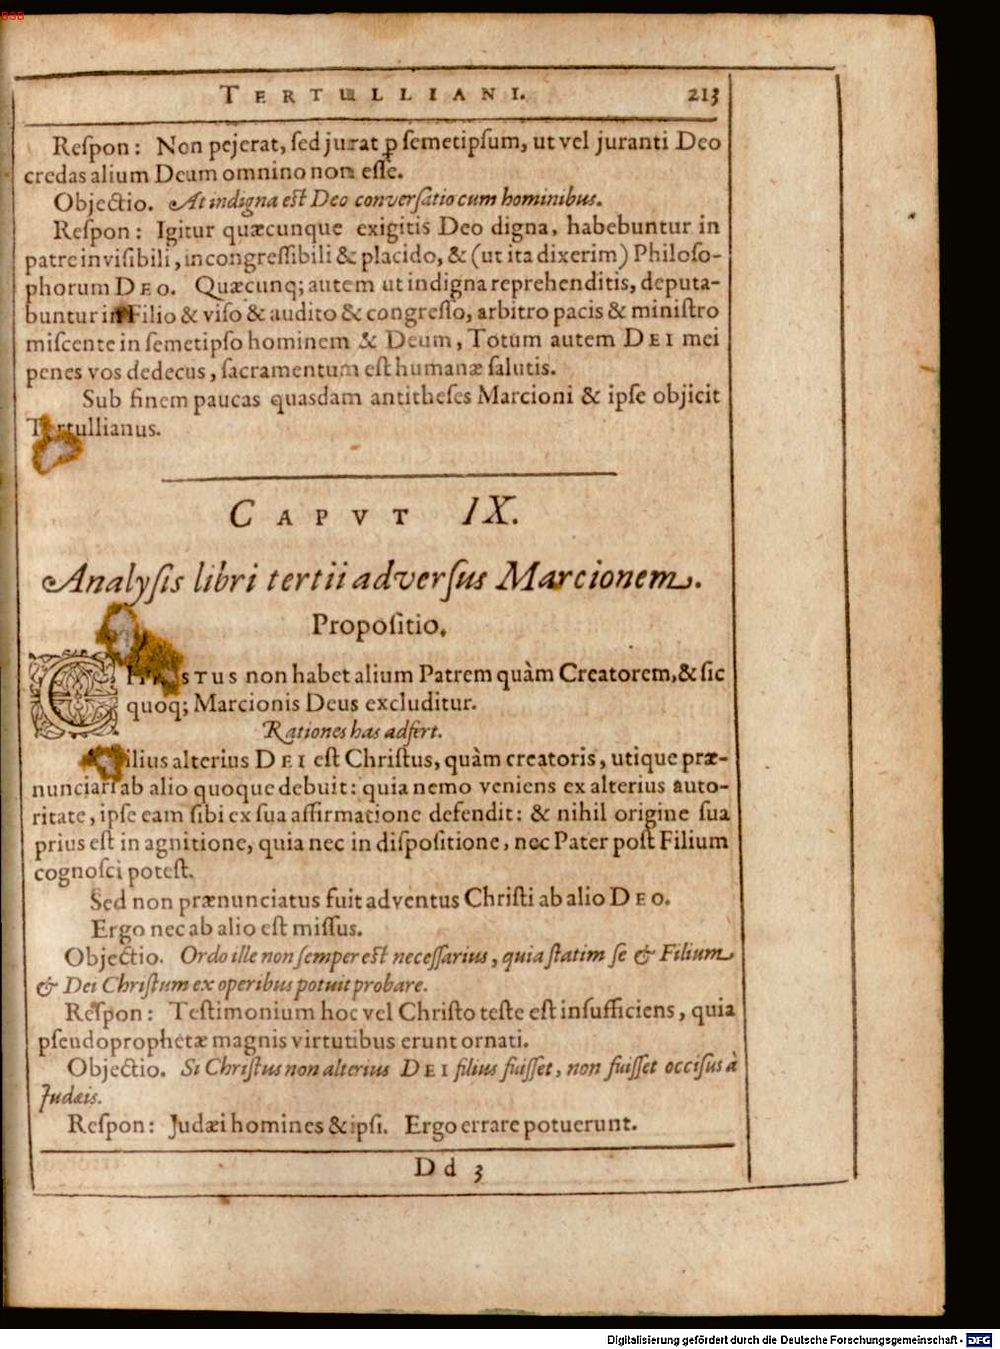 BSB
TERTULLIANI. 213
Reſpon: Non pejerat, ſed jurat ꝑ ſemetipſum, ut vel juranti Deo
credas alium Deum omnino non eſſe.
Objectio. At indigna eſt Deo converſatio cum hominibus.
Reſpon: Igitur quæcunque exigitis Deo digna, habebuntur in
patre inviſibili, incongreſſibili & placido, & (ut ita dixerim) Philoſo-
phorum DEO. Quæcunq; autem ut indigna reprehenditis, deputa-
buntur in Filio & viſo & audito & congreſſo, arbitro pacis & miniſtro
miſcente in ſemetipſo hominem & Deum, Totum autem DEI mei
penes vos dedecus, ſacramentum eſt humanæ ſalutis.
Sub finem paucas quasdam antitheſes Marcioni & ipſe objicit
Tertullianus.
CAPVT IX.
Analyſis libri tertii adverſus Marcionem.
Propoſitio,
CHRISTUS non habet alium Patrem quàm Creatorem, & ſic
quoq; Marcionis Deus excluditur.
Rationes has adfert.
Filius alterius DEI eſt Chriſtus, quàm creatoris, utique præ-
nunciari ab alio quoque debuit: quia nemo veniens ex alterius auto-
ritate, ipſe eam ſibi ex ſua affirmatione defendit: & nihil origine ſua
prius eſt in agnitione, quia nec in diſpoſitione, nec Pater poſt Filium
cognoſci poteſt.
Sed non prænunciatus fuit adventus Chriſti ab alio DEO.
Ergo nec ab alio eſt miſſus.
Objectio. Ordo ille non ſemper eſt neceſſarius, quia ſtatim ſe & Filium
& Dei Chriſtum ex operibus potuit probare.
Reſpon: Teſtimonium hoc vel Chriſto teſte eſt inſufficiens, quia
pſeudoprophetæ magnis virtutibus erunt ornati.
Objectio. Si Chriſtus non alterius DEI filius fuiſſet, non fuiſſet occiſus à
Judæis.
Reſpon: Judæi homines & ipſi. Ergo errare potuerunt.
Dd 3
Digitalisierung gefördert durch die Deutsche Forschungsgemeinschaft - DFG